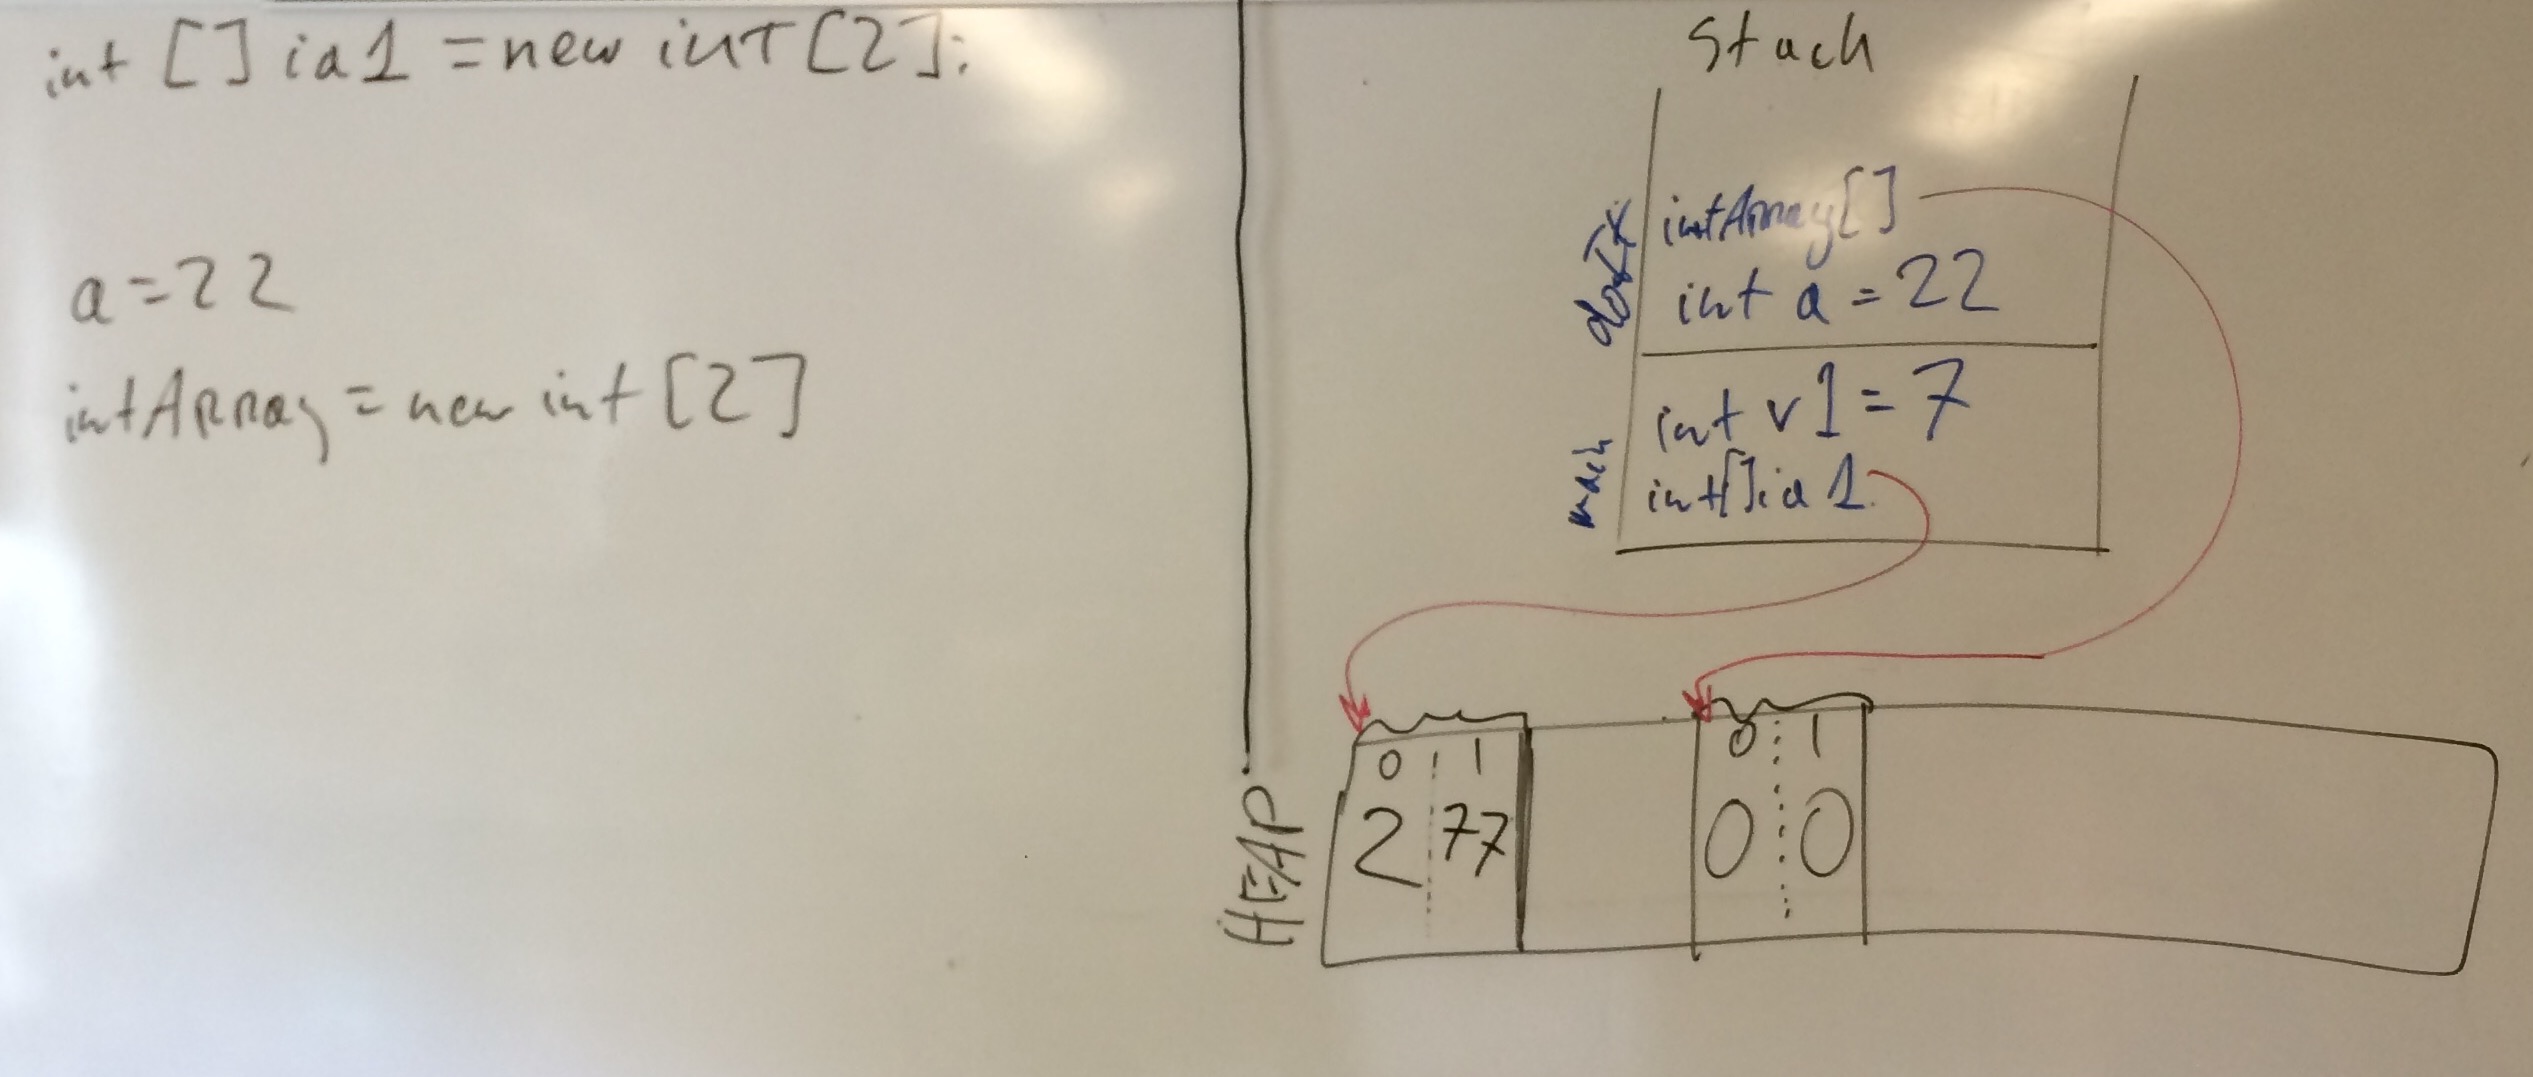 int [] ia1 = new int [2];
a = 22
intArray = new int [2]
Stack
intArray[]
int a = 22
int v1 = 7
int[] ia1
HEAP
0 1
2 77
0 1
0 0